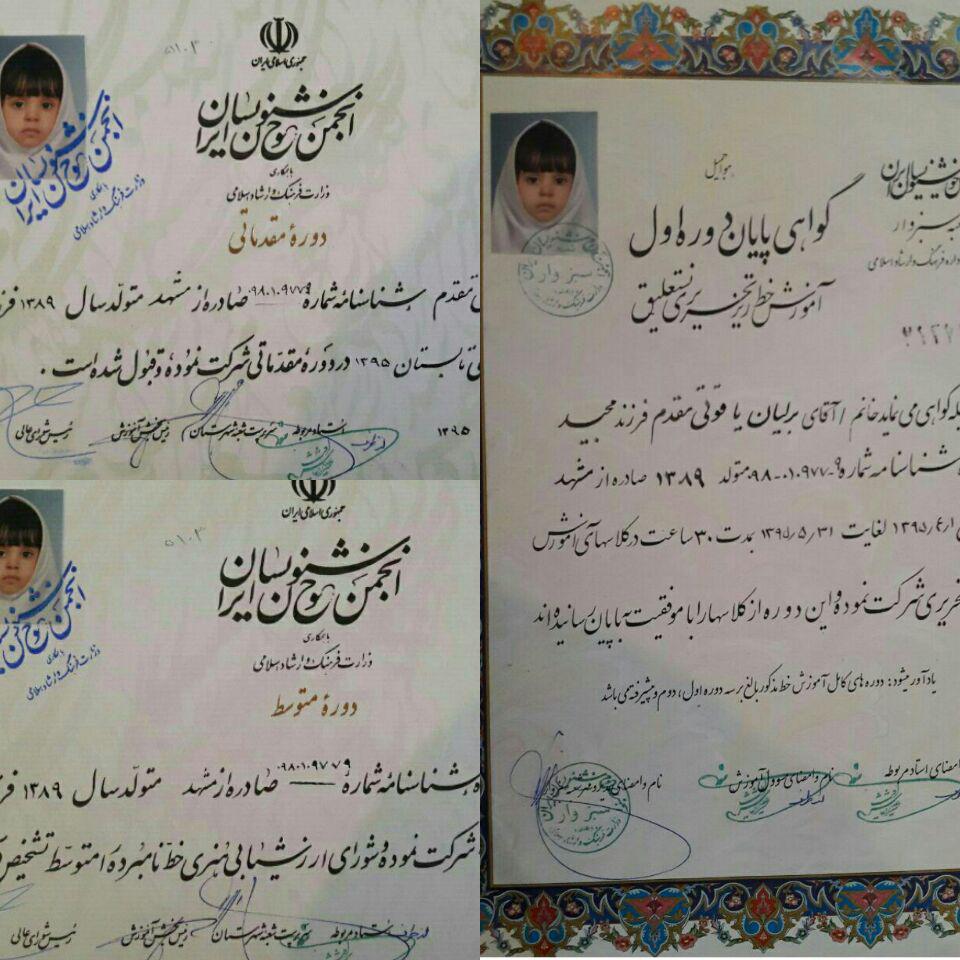 ۵۱۰۳
جمهوری اسلامی ایران
انجمن خوشنویسان ایران
با همکاری
وزارت فرهنگ و ارشاد اسلامی
دورهٔ مقدماتی
مقدم بشناسنامهٔ شماره ۰۹۸۰۱۰۹۷۷۹ صادره از مشهد متولد سال ۱۳۸۹
تابستان ۱۳۹۵ در دورهٔ مقدماتی شرکت نموده و قبول شده است .
۱۳۹۵ استاد مربوطه سرپرست شعبه شهرستان رئیس بخش آموزش رئیس شورای عالی
انجمن خوشنویسان ایران
با همکاری
وزارت فرهنگ و ارشاد اسلامی
جمهوری اسلامی ایران
۵۱۰۳
انجمن خوشنویسان ایران
با همکاری
وزارت فرهنگ و ارشاد اسلامی
دورهٔ متوسط
بشناسنامهٔ شماره ۰۹۸۰۱۰۹۷۷۹ صادره از مشهد متولد سال ۱۳۸۹
شرکت نموده و شورای ارزشیابی هنری خط نامبرده را متوسط تشخیص
استاد مربوطه سرپرست شعبه شهرستان رئیس بخش آموزش رئیس شورای عالی
انجمن خوشنویسان ایران
با همکاری
وزارت فرهنگ و ارشاد اسلامی
هوالجمیل
خوشنویسان ایران
سبزوار
اداره فرهنگ و ارشاد اسلامی
گواهی پایان دوره اول
آموزش خط ریز تحریری نستعلیق
گواهی می نماید خانم / آقای برلیان یاقوتی مقدم فرزند مجید
شناسنامه شماره ۰۹۸۰۰۱۰۹۷۷-۹ متولد ۱۳۸۹ صادره از مشهد
۱۳۹۵/۴/۱ لغایت ۱۳۹۵/۵/۳۱ بمدت ۳۰ ساعت در کلاسهای آموزش
تحریری شرکت نموده و این دوره از کلاسها را با موفقیت به پایان رسانیده اند
یادآور میشود : دوره های کامل آموزش خط مذکور بالغ بر سه دوره اول ، دوم و پیشرفته می باشد
امضای استاد مربوطه نام و امضای مسوول آموزش نام و امضای
سبزوار
سبزوار